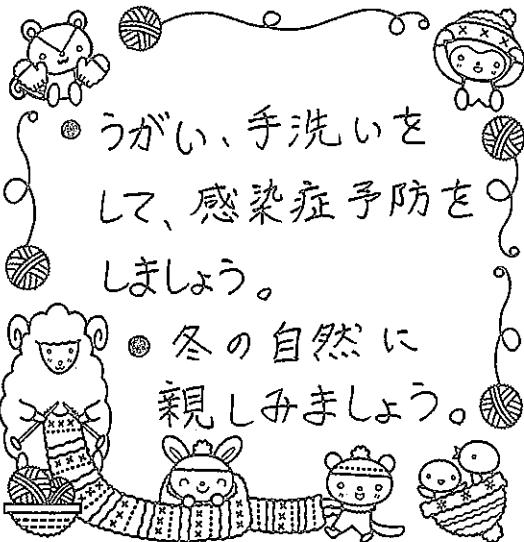 ● うがい、手洗いを
して、感染症予防を
しましょう。
● 冬の自然に
親しみましょう。